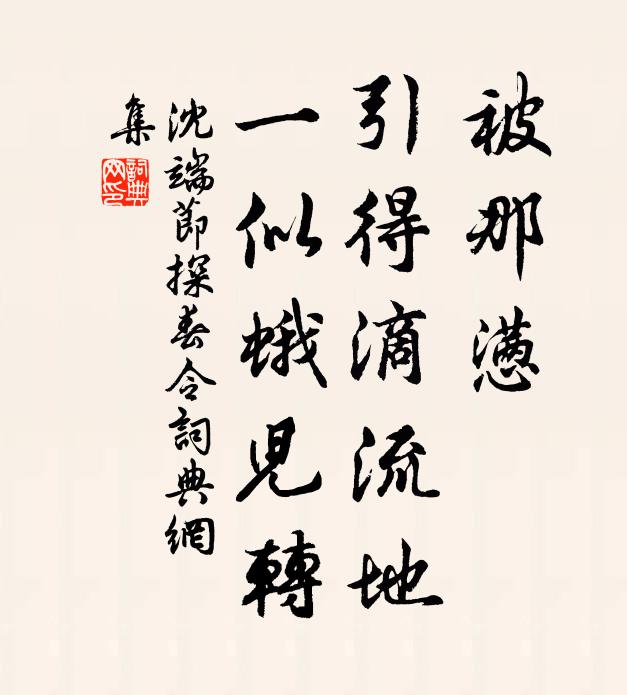 被那懣
引得滴流地
一似蛾兒轉
沈端節探春令詞典網
集
詞典
网印